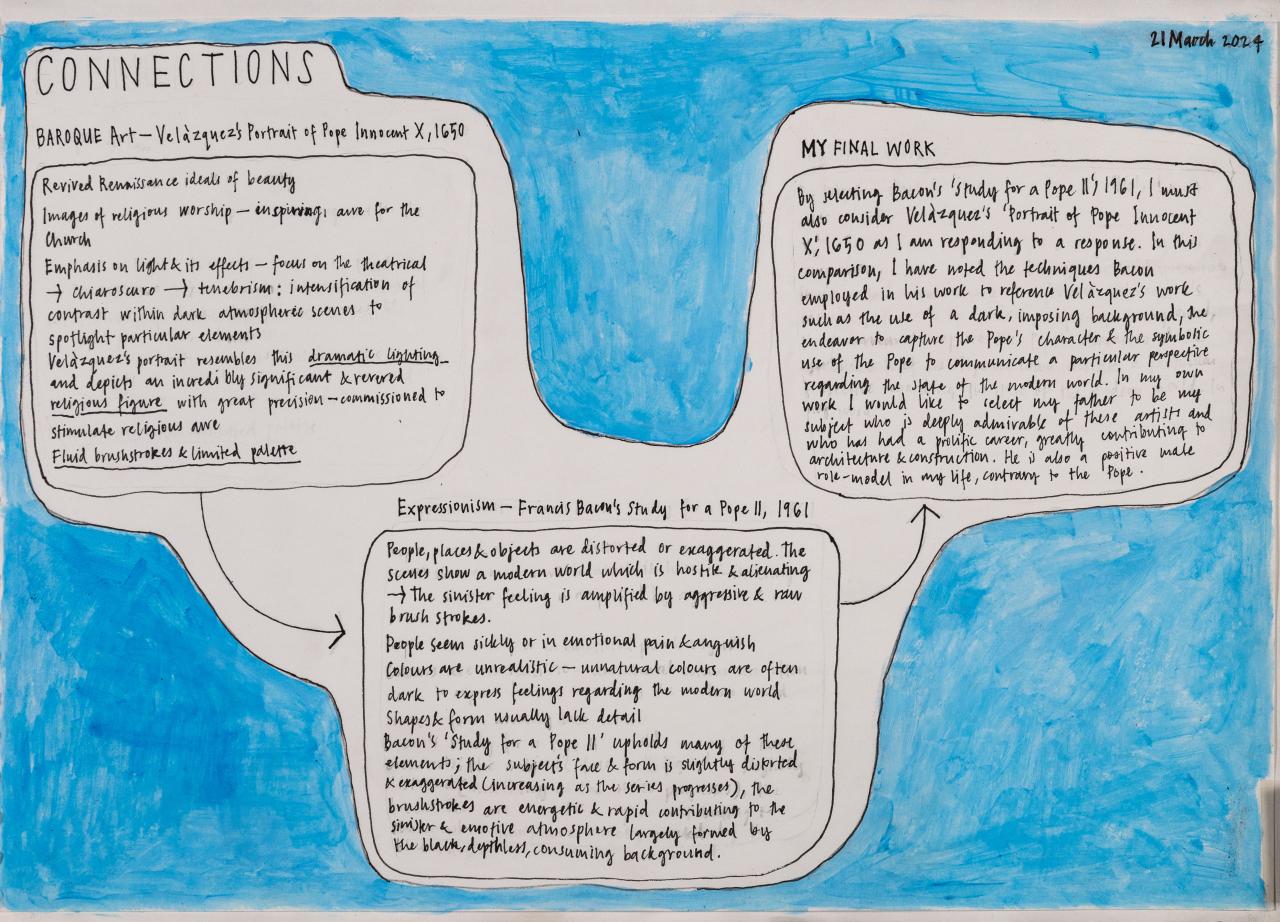 CONNECTIONS
21 March 2024
BAROQUE Art — Velàzquez's Portrait of Pope Innocent X, 1650
Revived Renaissance ideals of beauty
Images of religious worship — inspiring awe for the
Church
Emphasis on light & its effects — focus on the theatrical
→ chiaroscuro → tenebrism : intensification of
contrast within dark atmospheric scenes to
spotlight particular elements
Velàzquez's portrait resembles this dramatic lighting
and depicts an incredibly significant & revered
religious figure with great precision — commissioned to
stimulate religious awe
Fluid brushstrokes & limited palette
Expressionism — Francis Bacon's Study for a Pope II, 1961
People, places & objects are distorted or exaggerated. The
scenes show a modern world which is hostile & alienating
→ The sinister feeling is amplified by aggressive & raw
brush strokes.
People seem sickly or in emotional pain & anguish
Colours are unrealistic — unnatural colours are often
dark to express feelings regarding the modern world
Shapes & form usually lack detail
Bacon's 'Study for a Pope II' upholds many of these
elements; the subject's face & form is slightly distorted
& exaggerated (increasing as the series progresses), the
brushstrokes are energetic & rapid contributing to the
sinister & emotive atmosphere largely formed by
the black, depthless, consuming background.
MY FINAL WORK
By selecting Bacon's 'Study for a Pope II', 1961, I must
also consider Velàzquez's 'Portrait of Pope Innocent
X', 1650 as I am responding to a response. In this
comparison, I have noted the techniques Bacon
employed in his work to reference Velàzquez's work
such as the use of a dark, imposing background, the
endeavor to capture the Pope's character & the symbolic
use of the Pope to communicate a particular perspective
regarding the state of the modern world. In my own
work I would like to select my father to be my
subject who is deeply admirable of these artists and
who has had a prolific career, greatly contributing to
architecture & construction. He is also a positive male
role-model in my life, contrary to the Pope.